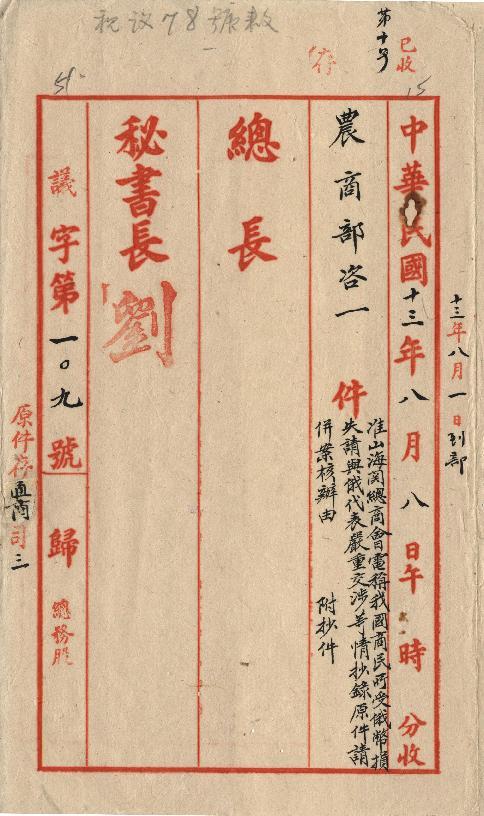 稅議78號教
第十號
已收
存
15
51
十三年八月一日到部
中華民國十三年八月八日午 時 分收
農商部咨一 件
准山海関總商會電稱我國商民所受俄幣損
失請與俄代表嚴重交涉等情抄錄原件請
併案核辦由 附抄件
總長
秘書長
劉
議字第一〇九號 歸總務股
原件存通商司三